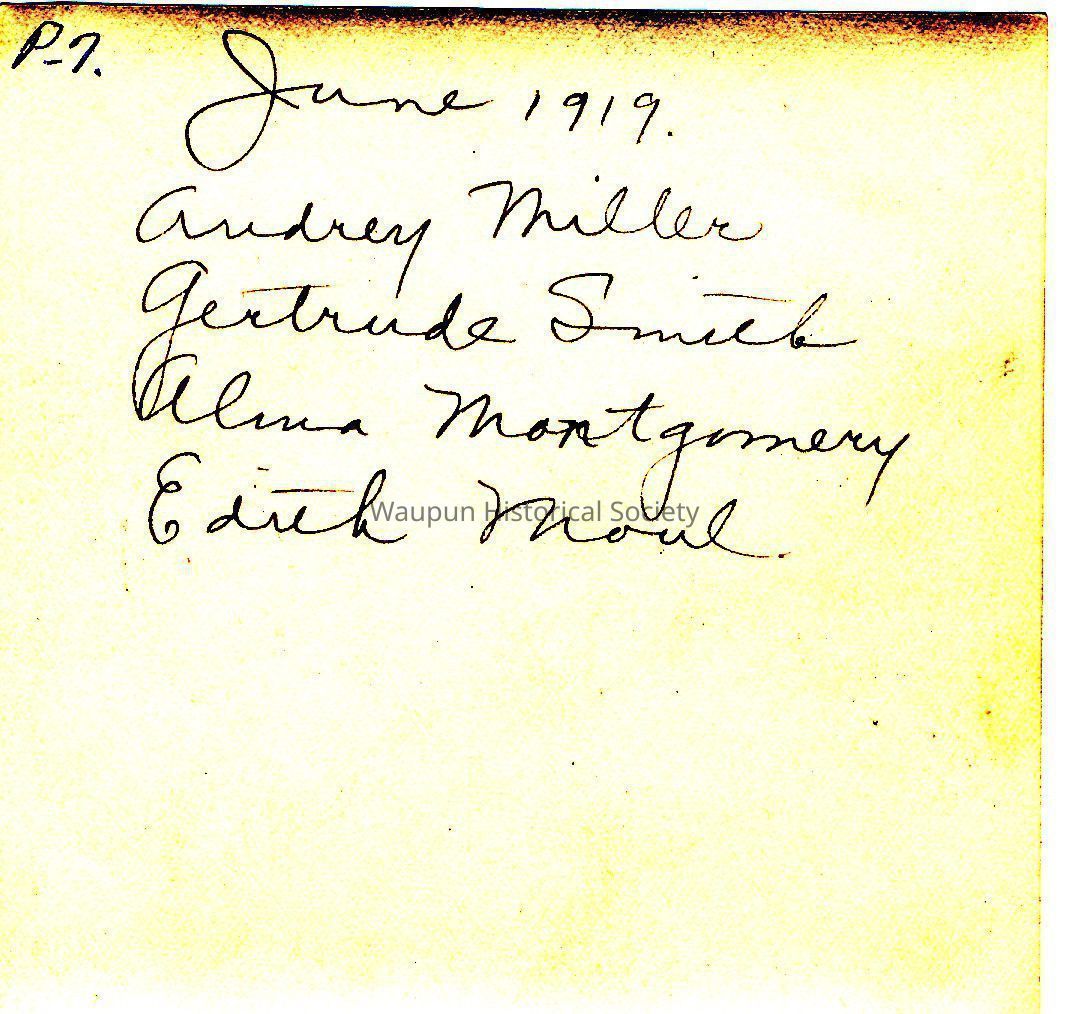 P-7.
June 1919.
Audrey Miller
Gertrude Smith
Alma Montgomery
Edith Moul.
Waupun Historical Society